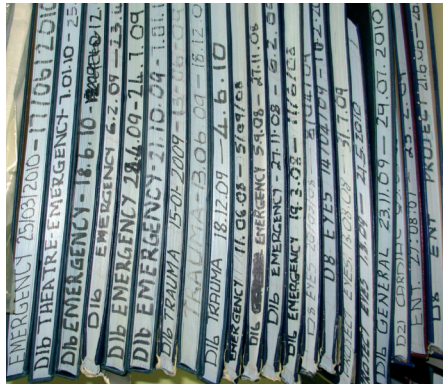 EMERGENCY 25/03/2010 - 17/06/2010
D16 THEATRE-EMERGENCY 7.01.10 - 25.
D16 EMERGENCY - 18.6.10 - 12.
D16 EMERGENCY 6.2.09 - 23.4.
D16 EMERGENCY 28.4.09 - 24.7.09
D16 EMERGENCY 21.10.09 - 7.01.1
D16 TRAUMA 15-01-2009 - 13-06-09
TRAUMA 13.06.09 - 18.12.0
D16 TRAUMA 18.12.09 - 4.6.10
EMERGENCY 11.06.08 - 5/09/08
D16 EMERGENCY 5.9.08 - 27.11.08
D16 EMERGENCY 27.11.08 - 6.2.09
D16 EMERGENCY 19.3.08 - 11/6/08
D8 EYES
D8 EYES 14.04.09
EYES 13.08.08 - 31.7.09
EYES 21.5.2010
D16 GENERAL 23.11.09 - 29.07.2010
D21 CARDIAC
ENT. 27:08:07
ENT PROJECT